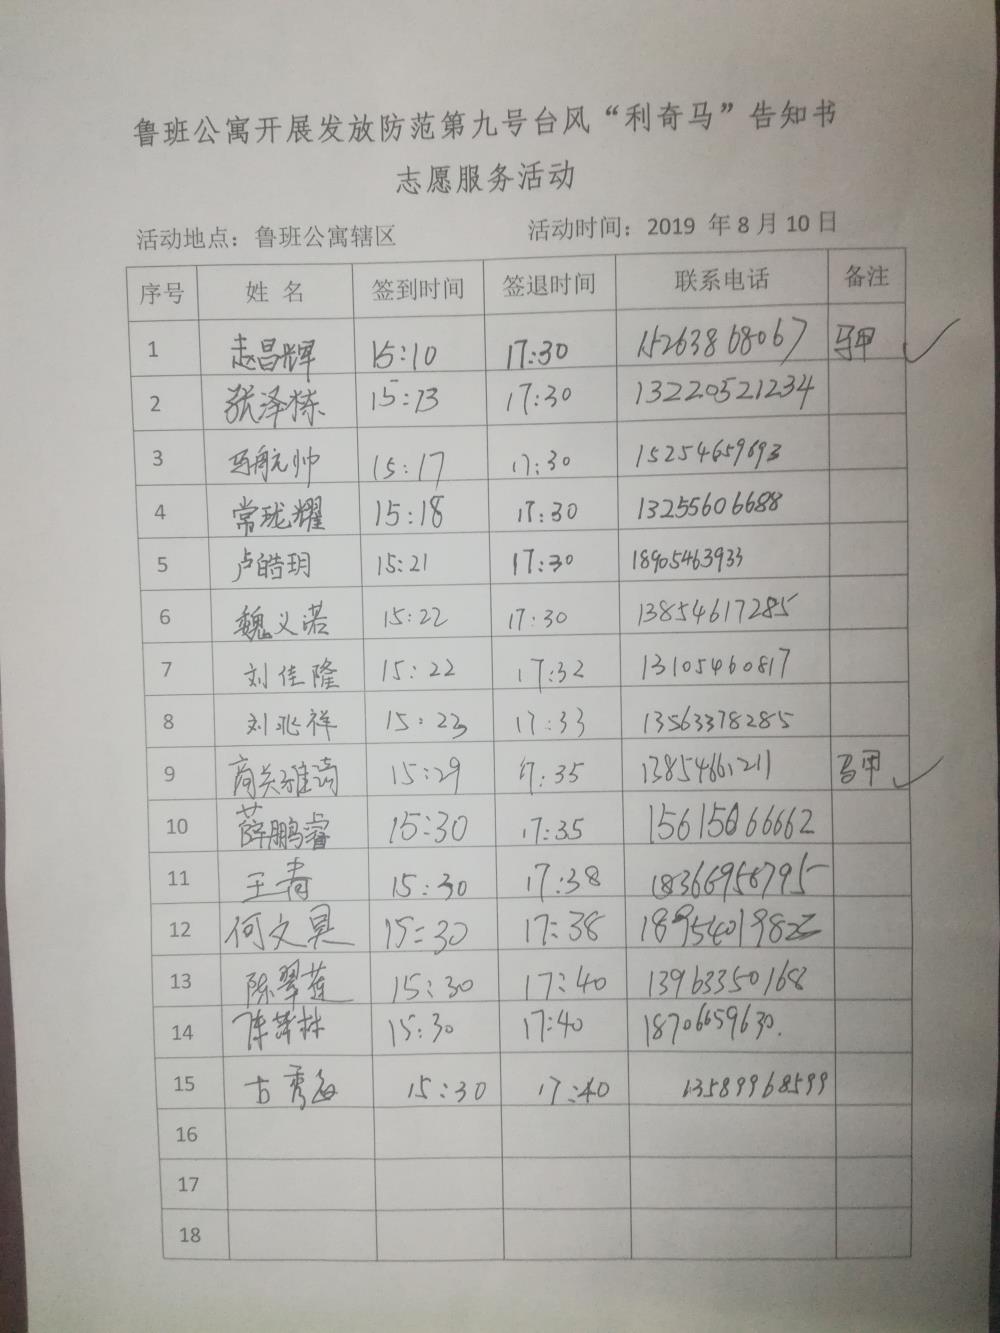 鲁班公寓开展发放防范第九号台风“利奇马”告知书
志愿服务活动
活动地点：鲁班公寓辖区 活动时间：2019 年8月10日
序号 姓 名 签到时间 签退时间 联系电话 备注
1 赵昌辉 15:10 17:30 15263868067 马甲 ✓
2 张泽栋 15:13 17:30 13220521234
3 马航帅 15:17 17:30 15254659693
4 常珑耀 15:18 17:30 13255606688
5 卢皓玥 15:21 17:30 18905463933
6 魏义诺 15:22 17:30 13854617285
7 刘佳隆 15:22 17:32 13105460817
8 刘兆祥 15:23 17:33 13563378285
9 商关雅琦 15:29 17:35 13854661211 马甲 ✓
10 薛鹏睿 15:30 17:35 15615066662
11 王青 15:30 17:38 18366958795
12 何文昊 15:30 17:38 18954019822
13 陈翠莲 15:30 17:40 13963350168
14 15:30 17:40 18706659630.
15 古秀海 15:30 17:40 13589968599
16
17
18